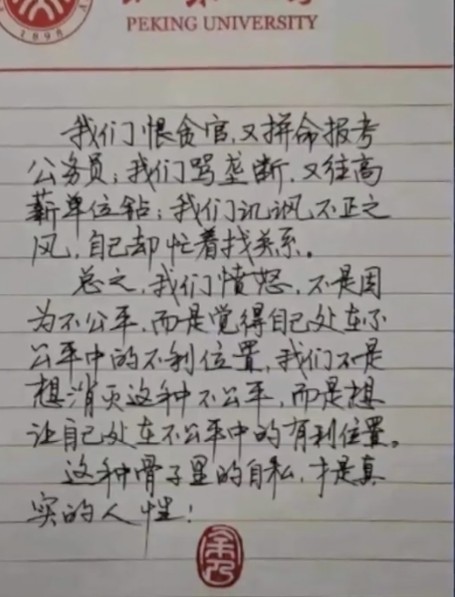 1898
PEKING UNIVERSITY
我们恨贪官,又拼命报考
公务员;我们骂垄断,又往高
薪单位钻;我们讥讽不正之
风,自己却忙着找关系。
总之,我们愤怒,不是因
为不公平,而是觉得自己处在不
公平中的不利位置,我们不是
想消灭这种不公平,而是想
让自己处在不公平中的有利位置。
这种骨子里的自私,才是真
实的人性!